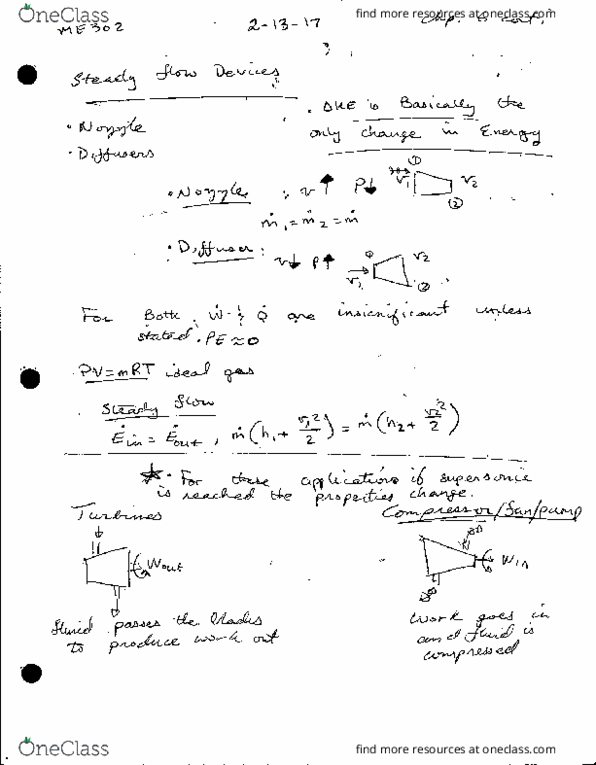 OneClass
find more resources at oneclass.com
ME 302
2-13-17
Chp.
Steady flow Devices
• Nozzle
• Diffusers
• ΔKE is Basically the
only change in Energy
• Nozzle : v ↑ P↓
① v₁ v₂ ②
ṁ₁ = ṁ₂ = ṁ
• Diffuser : v↓ P↑
① v₁ v₂ ②
For Both, Ẇ & Q̇ are insignificant unless
stated. PE ≈ 0
PV = mRT ideal gas
Steady flow
Ėin = Ėout , ṁ(h₁ + v₁²/2) = ṁ(h₂ + v₂²/2)
★ • For these applications if supersonic
is reached the properties change.
Turbines
Wout
fluid passes the blades
to produce work out
Compressor/fan/pump
Win
work goes in
and fluid is
compressed
OneClass
find more resources at oneclass.com